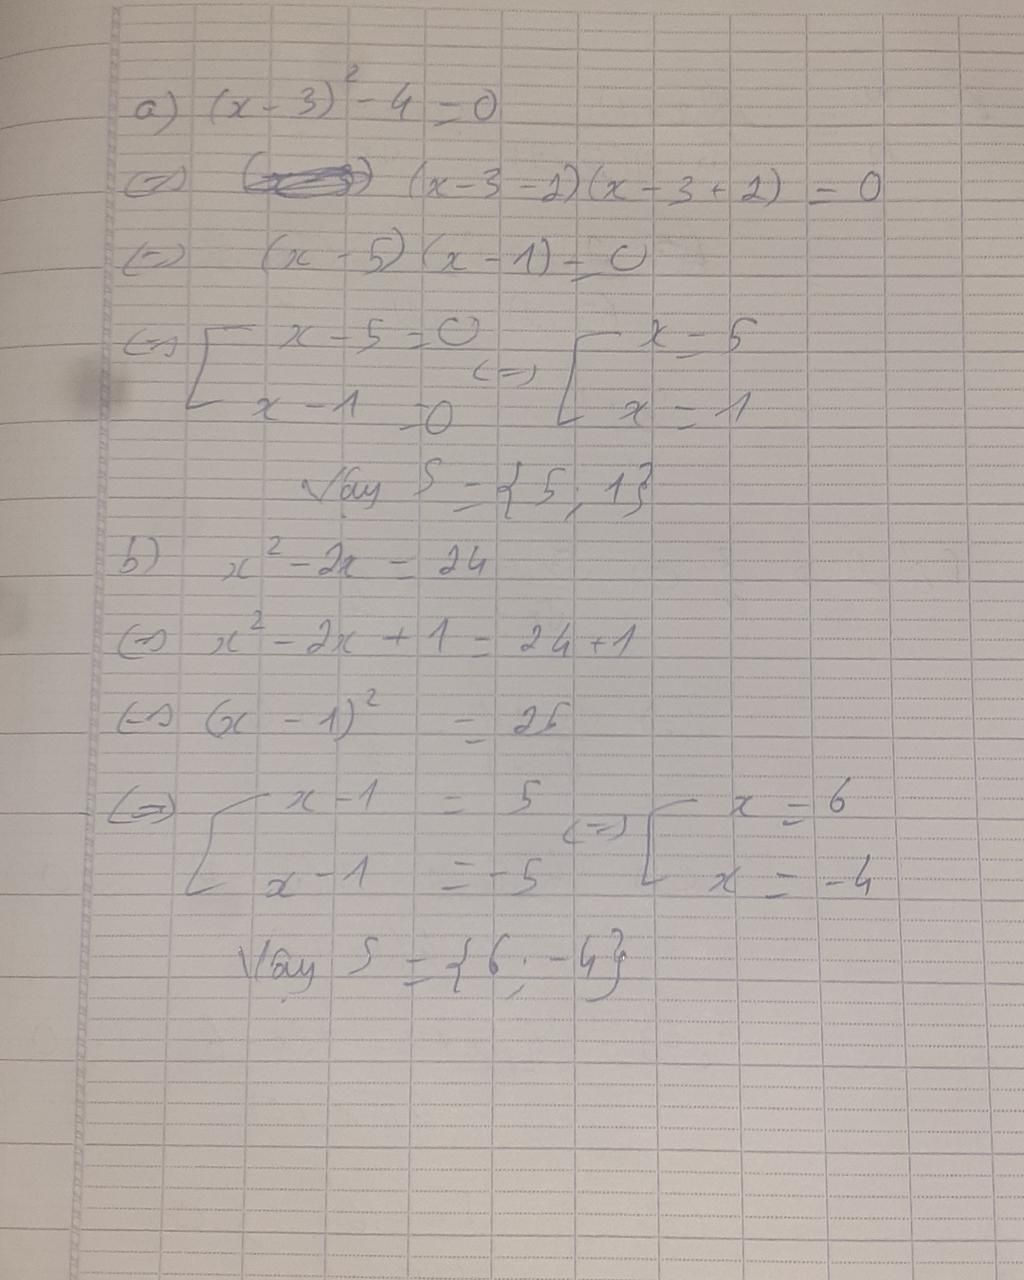 a) (x - 3)² - 4 = 0
(=) (x - 3 - 2)(x - 3 + 2) = 0
(=) (x - 5)(x - 1) = 0
(=) [ x - 5 = 0 (=) [ x = 5
x - 1 = 0 x = 1
Vậy S = {5; 1}
b) x² - 2x = 24
(=) x² - 2x + 1 = 24 + 1
(=) (x - 1)² = 25
(=) [ x - 1 = 5 (=) [ x = 6
x - 1 = -5 x = -4
Vậy S = {6; -4}